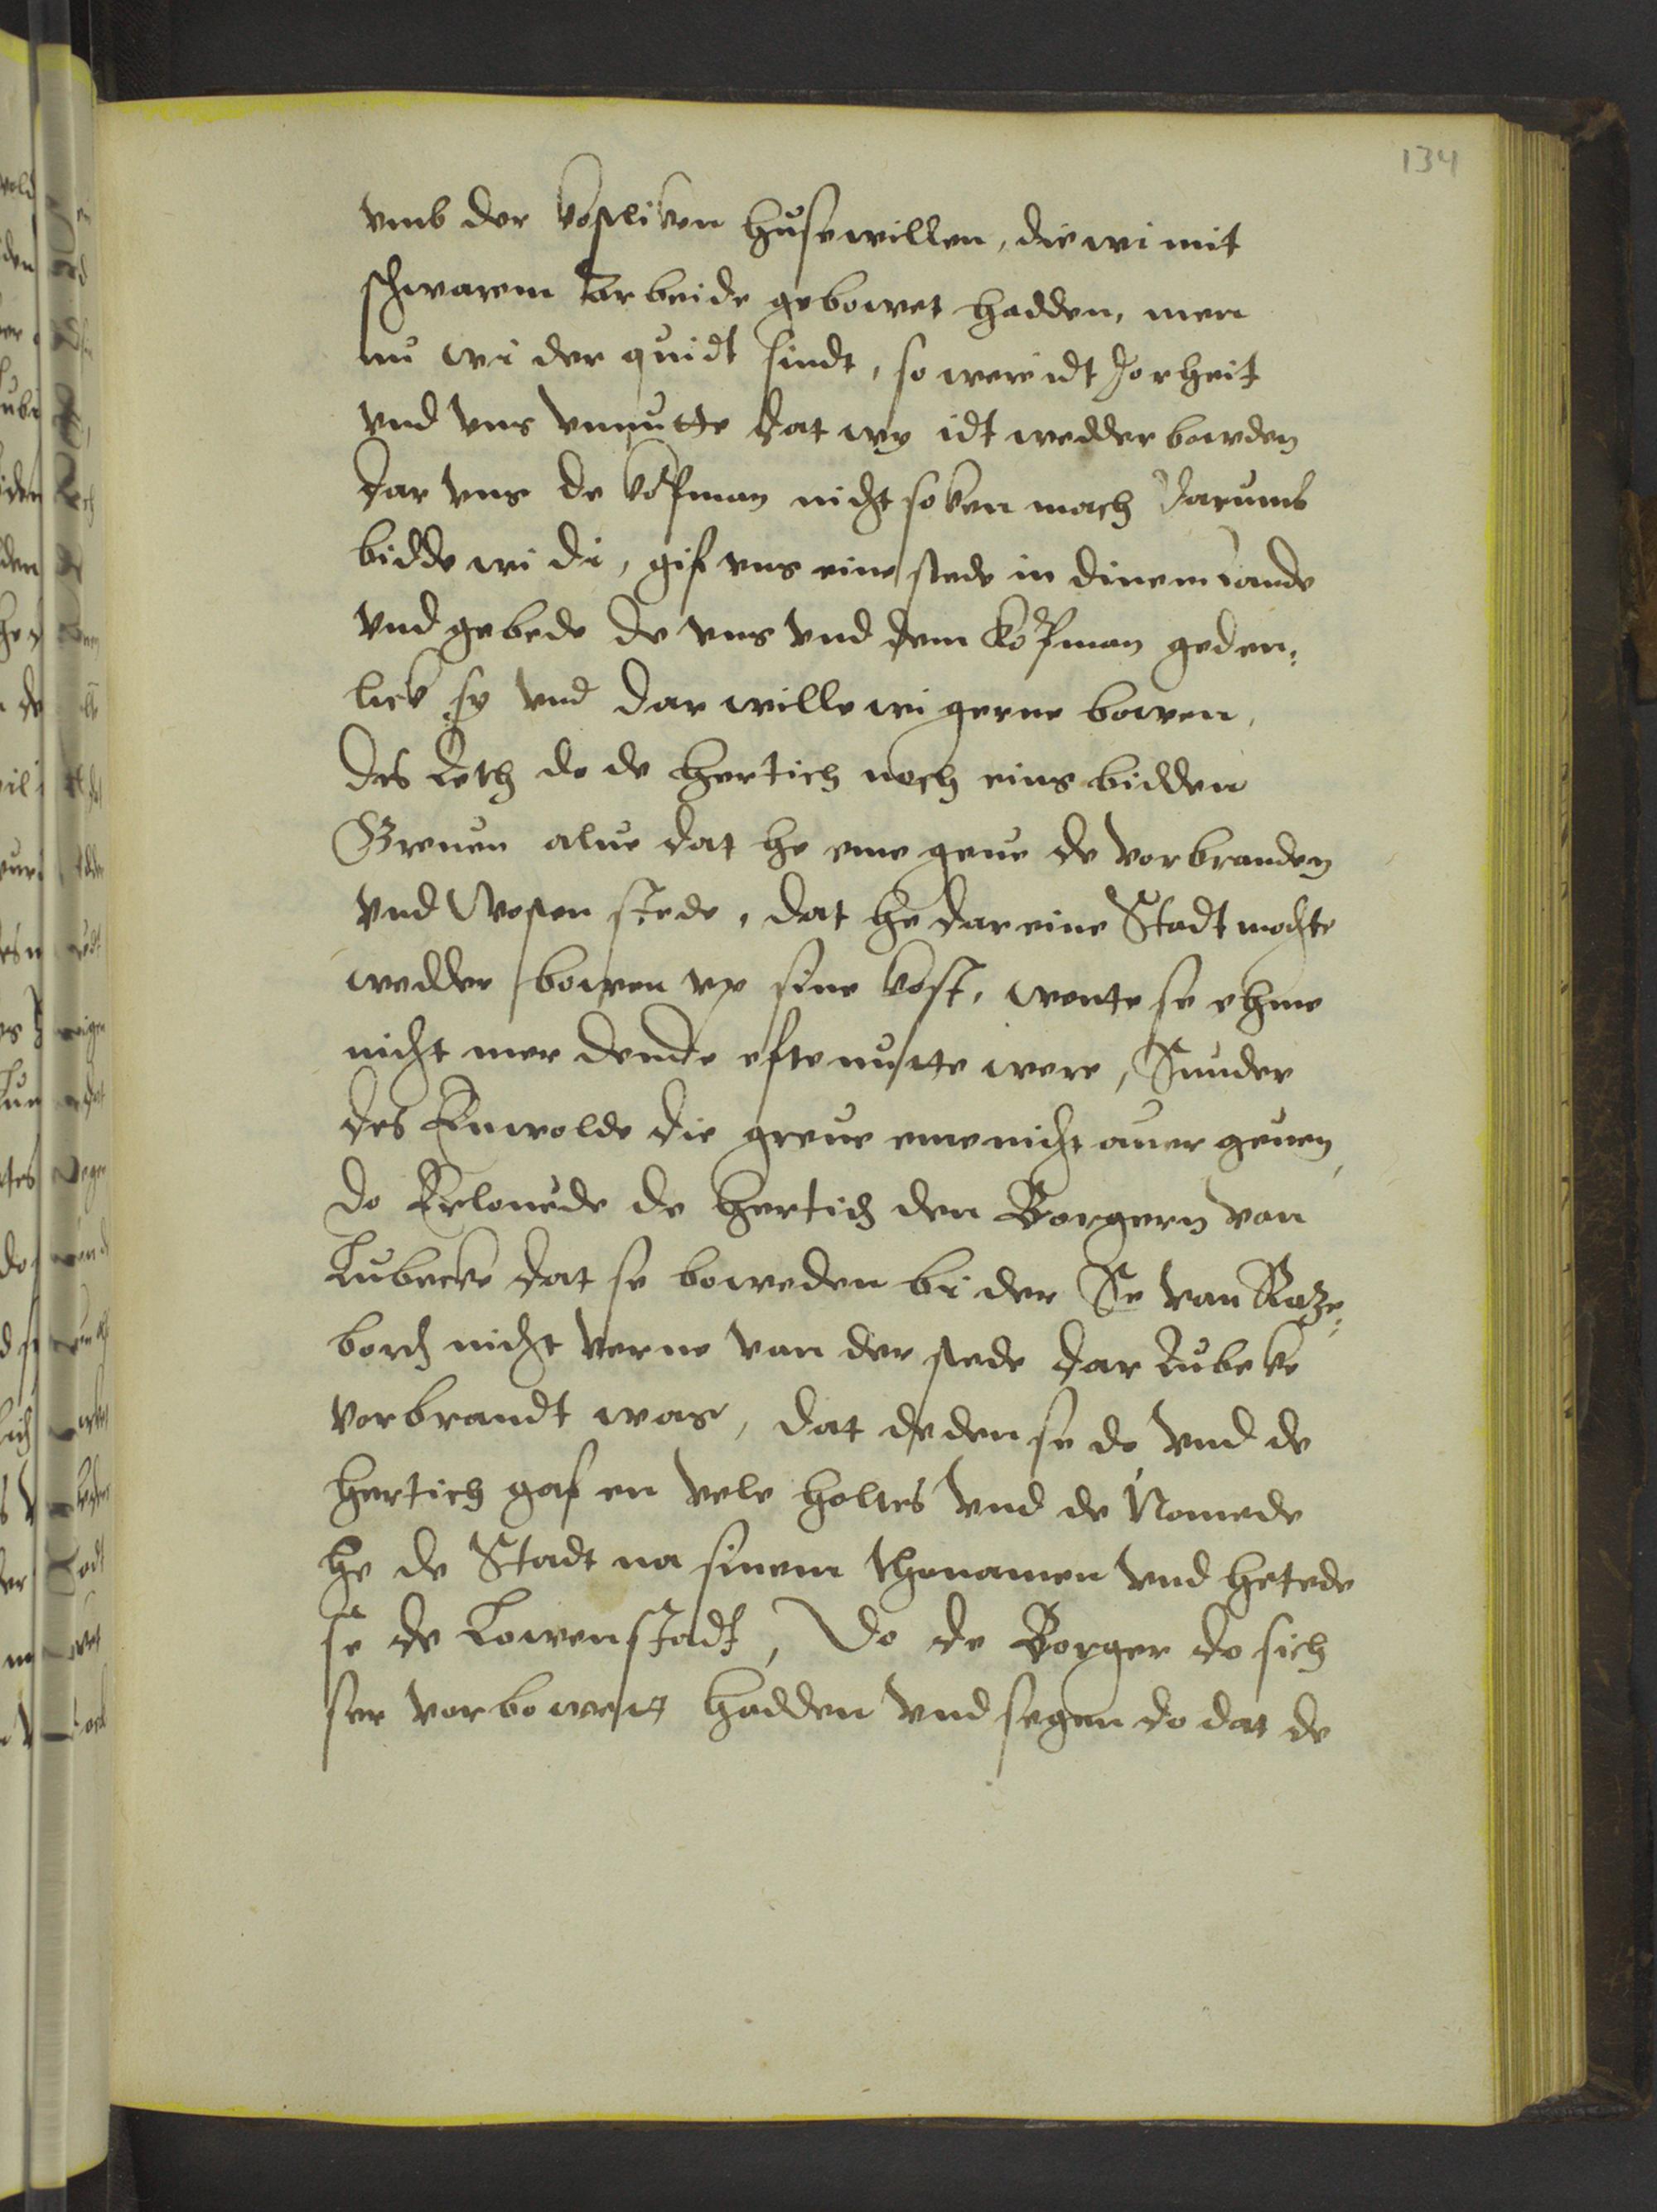 134
vmb der kostliken huse willen, die wi mit
schwarem arbeide gebowet hadden, men
nu wi der quidt sindt, so were idt Dorheit
vnd vns vnnutte dat wy idt wedder bowden
dar vns de kopman nicht soken mach Darumb
bidde wi di, gif vns eine stede in dinem lande
vnd gebede de vns vnd dem kopman geden,
lick sy vnd dar wille wi gerne bowen,
Des Leth do de hertich noch eins bidden
Greuen alue dat he eme geue de vorbranden
vnd Wosten stede, dat he dar eine Stadt mochte
wedder bowen vp sine kost, wente se ehme
nicht mer dende efte nutte were, Sunder
des Enwolde die greue eme nicht auer geuen,
do Erlouede de hertich den Borgern van
Lubecke dat se boweden bi der Se van Raze,
borch nicht verne van der stede dar Lubeke
vorbrandt was, dat deden se do vnd de
hertich gaf en vele holtes vnd de Nomede
he de Stadt na sinem thonamen vnd hetede
se de Lowenstadt, Do de Borger do sich
ser vorbowet hadden vnd segen do dat de